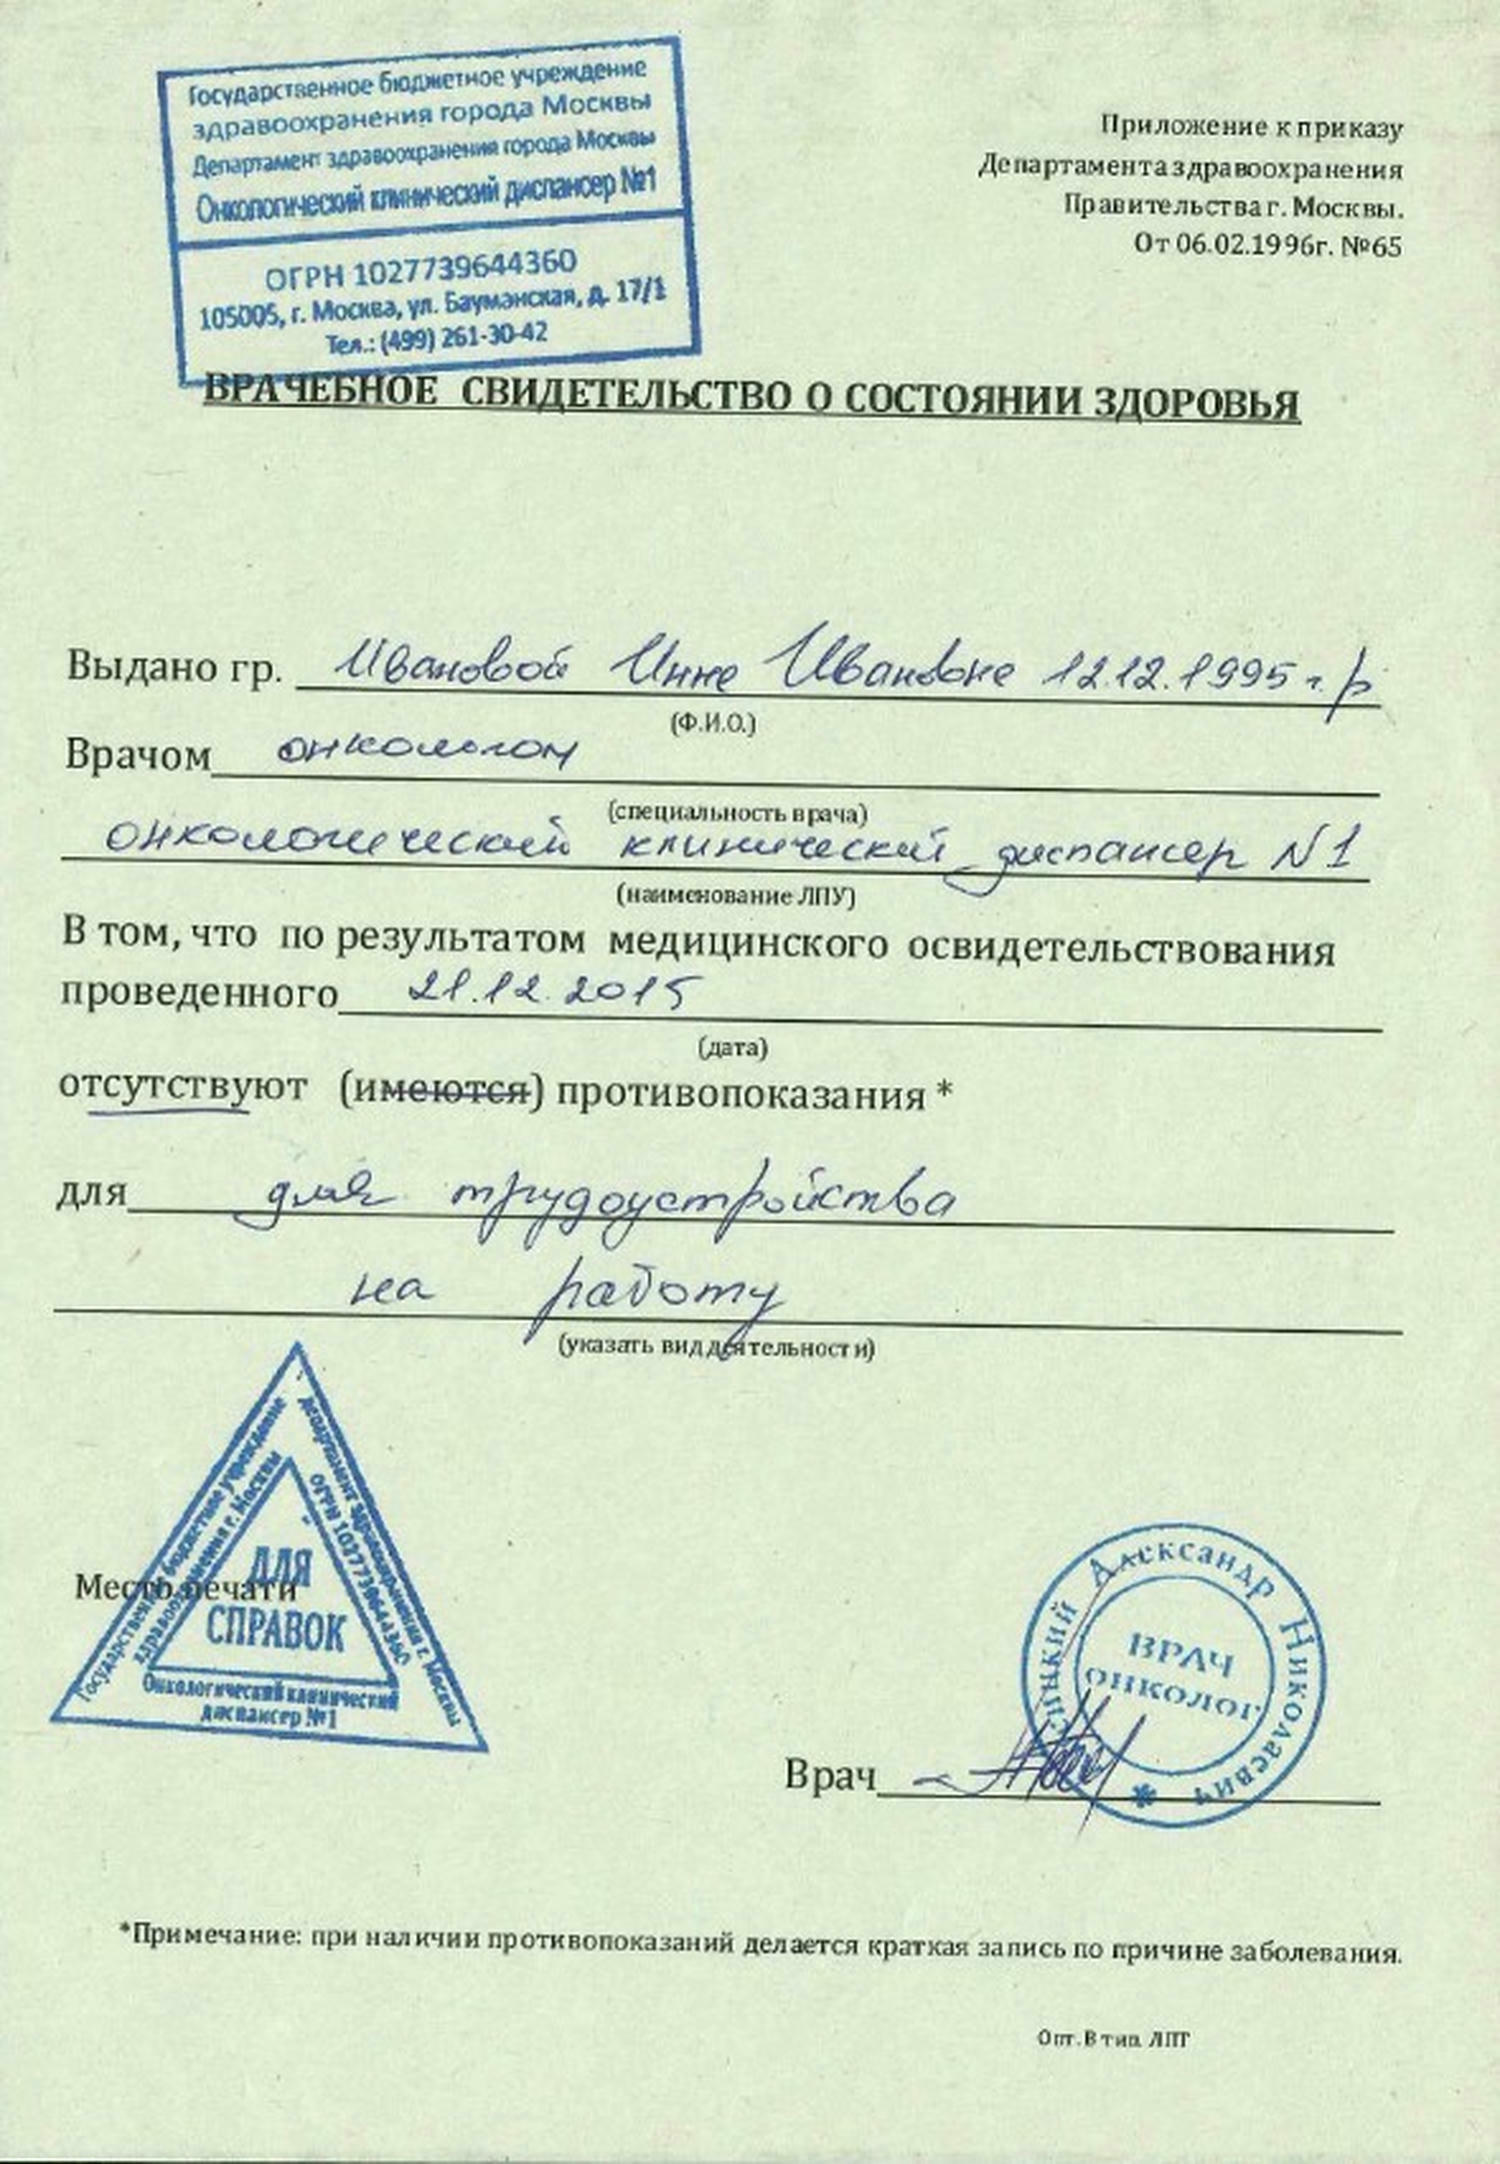 Государственное бюджетное учреждение
здравоохранения города Москвы
Департамент здравоохранения города Москвы
Онкологический клинический диспансер №1
ОГРН 1027739644360
105005, г. Москва, ул. Бауманская, д. 17/1
Тел.: (499) 261-30-42
Приложение к приказу
Департамента здравоохранения
Правительства г. Москвы.
От 06.02.1996г. №65
ВРАЧЕБНОЕ СВИДЕТЕЛЬСТВО О СОСТОЯНИИ ЗДОРОВЬЯ
Выдано гр. Ивановой Инне Ивановне 12.12.1995 г.р
(Ф.И.О.)
Врачом онкологом
(специальность врача)
онкологический клинический диспансер N1
(наименование ЛПУ)
В том, что по результатом медицинского освидетельствования
проведенного 21.12.2015
(дата)
отсутствуют (имеются) противопоказания *
для для трудоустройства
на работу
(указать вид деятельности)
Государственное бюджетное учреждение
здравоохранения г. Москвы
Департамент здравоохранения г. Москвы
ОГРН 1027739644360
ДЛЯ
СПРАВОК
Онкологический клинический
диспансер №1
Место печати
Александр Николаевич
ВРАЧ
ОНКОЛОГ
Врач
*Примечание: при наличии противопоказаний делается краткая запись по причине заболевания.
Опт. В тип. ЛПТ